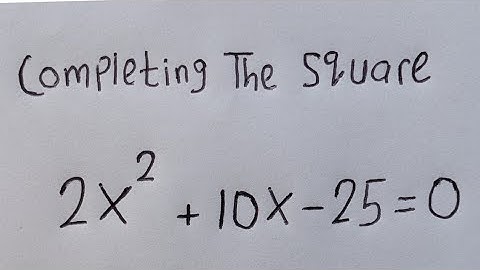 Completing The Square
2x² + 10x - 25 = 0